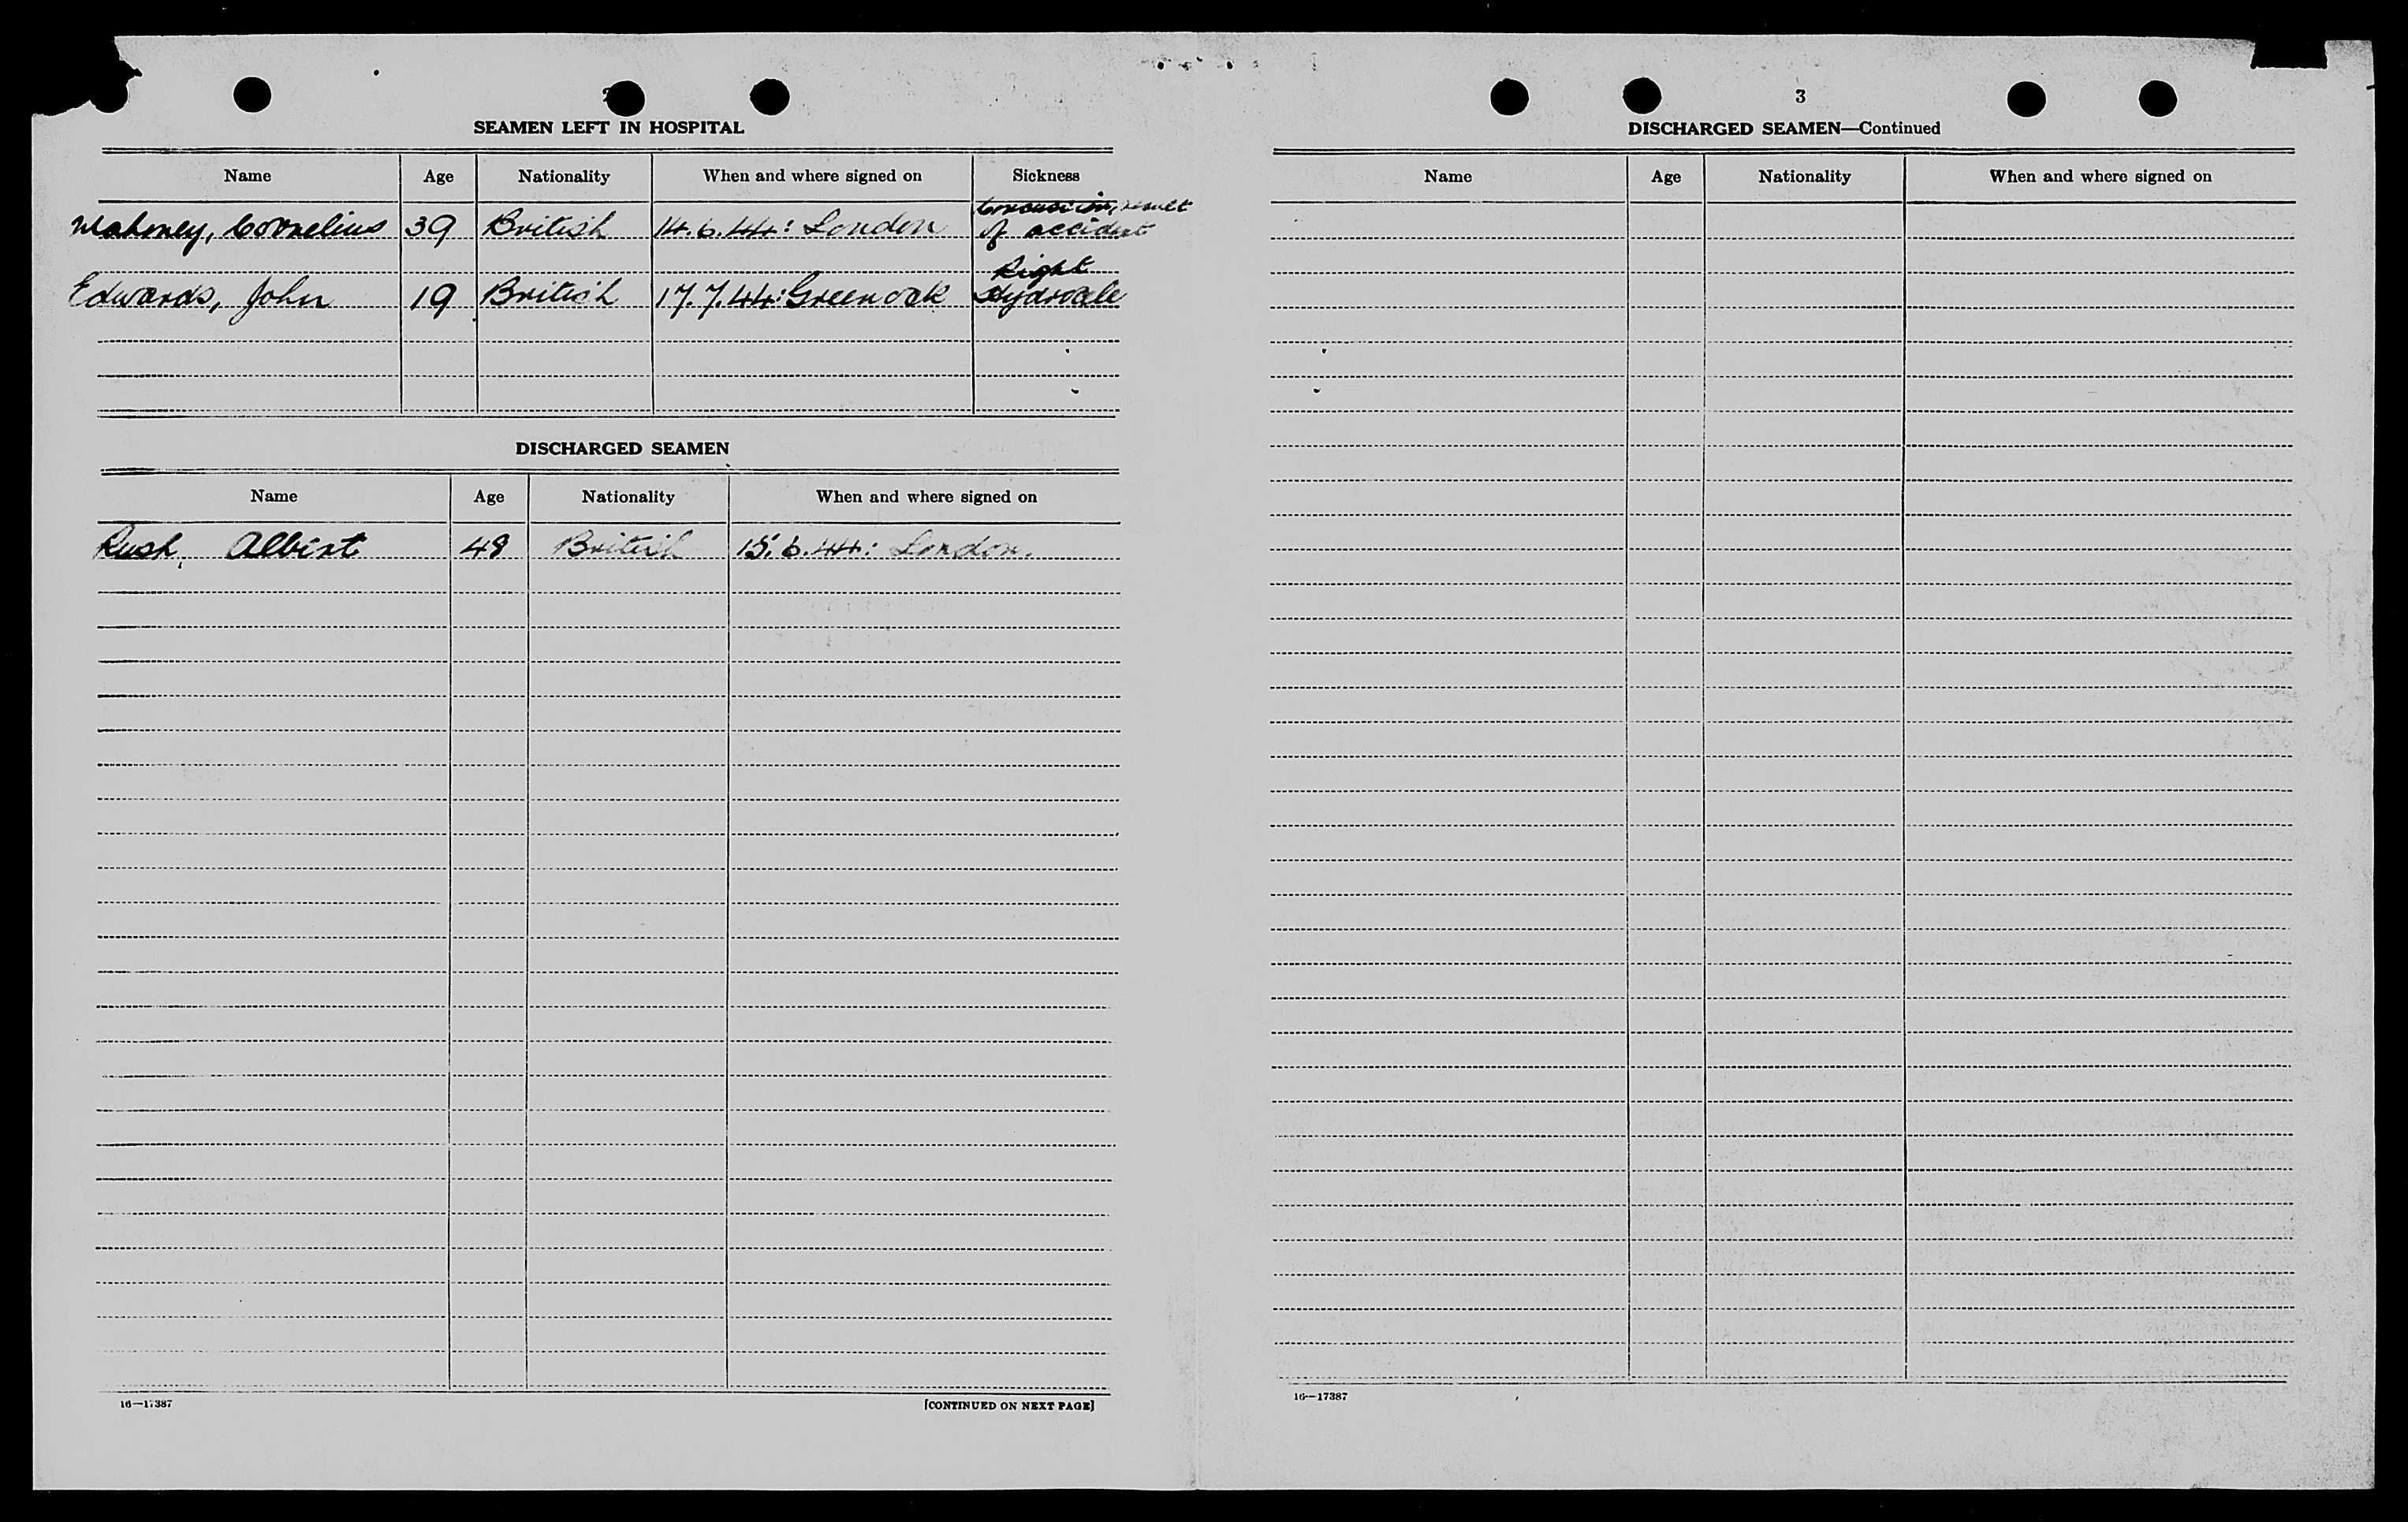 SEAMEN LEFT IN HOSPITAL
Name Age Nationality When and where signed on Sickness
Mahoney, Cornelius 39 British 14.6.44: London Concussion, result
of accident
Edwards, John 19 British 17.7.44: Greenock Right
Hydrocele
DISCHARGED SEAMEN
Name Age Nationality When and where signed on
Rush, Albert 48 British 15.6.44: London.
16—17387
[CONTINUED ON NEXT PAGE]
3
DISCHARGED SEAMEN—Continued
Name Age Nationality When and where signed on
16—17387